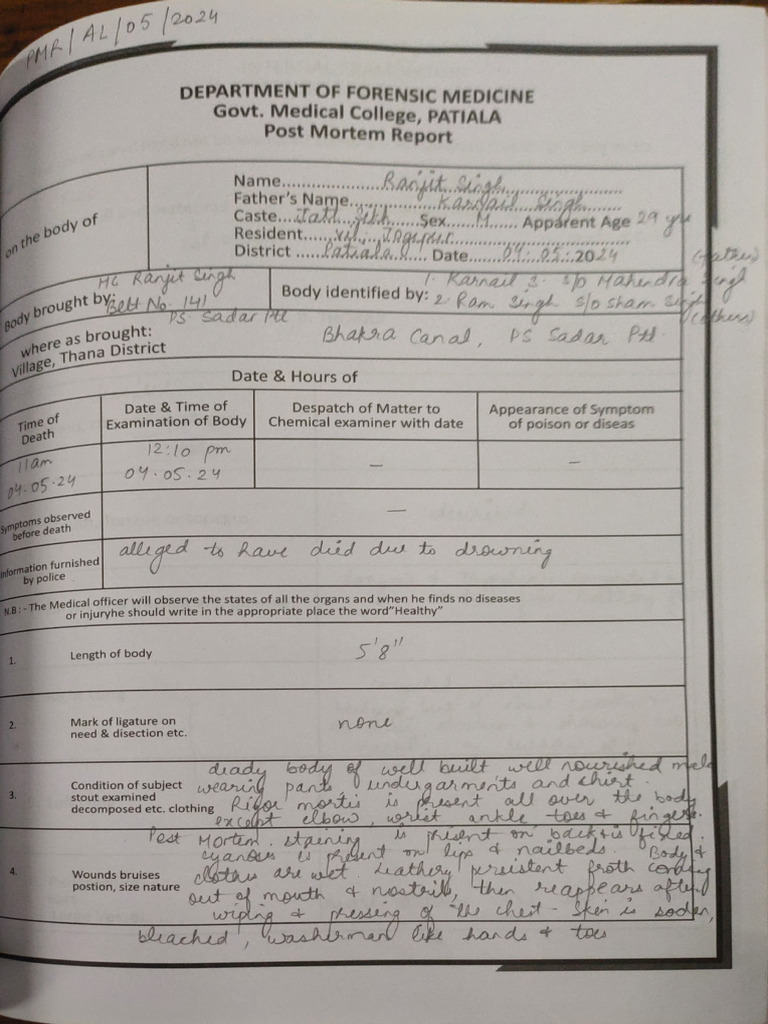 PMR/AL/05/2024
DEPARTMENT OF FORENSIC MEDICINE
Govt. Medical College, PATIALA
Post Mortem Report
on the body of
Name....................Ranjit Singh....................
Father's Name...............Karnail Singh........
Caste....Jatt Sikh......Sex......M.... Apparent Age 29 yrs
Resident......Vill. ....................
District ......Patiala........ Date........04.:.05.:.2024
Body brought by: HC Ranjit Singh
Belt No. 141
PS Sadar Ptl
Body identified by: 1. Karnail S. S/o Mahendra Singh (father)
2. Ram Singh S/o Sham Singh (others)
where as brought:
Village, Thana District
Bhakra Canal, PS Sadar Ptl.
Date & Hours of
Time of
Death
Date & Time of
Examination of Body
Despatch of Matter to
Chemical examiner with date
Appearance of Symptom
of poison or diseas
11am
04.05.24
12:10 pm
04.05.24
—
—
Symptoms observed
before death
—
Information furnished
by police
alleged to have died due to drowning
N.B : - The Medical officer will observe the states of all the organs and when he finds no diseases
or injuryhe should write in the appropriate place the word"Healthy"
1. Length of body 5'8"
2. Mark of ligature on
need & disection etc.
none
3. Condition of subject
stout examined
decomposed etc. clothing
deady body of well built well nourished male
wearing pants, undergarments and shirt.
Rigor mortis is present all over the body
except elbow, wrist ankle toes & fingers.
4. Wounds bruises
postion, size nature
Post Mortem staining is present on back & is fixed.
cyanosis is present on lips & nailbeds. Body &
clothes are wet. Leathery persistent froth coming
out of mouth & nostrils, then reappears after
wiping & pressing of the chest - Skin is soden,
bleached, washerman like hands & toes